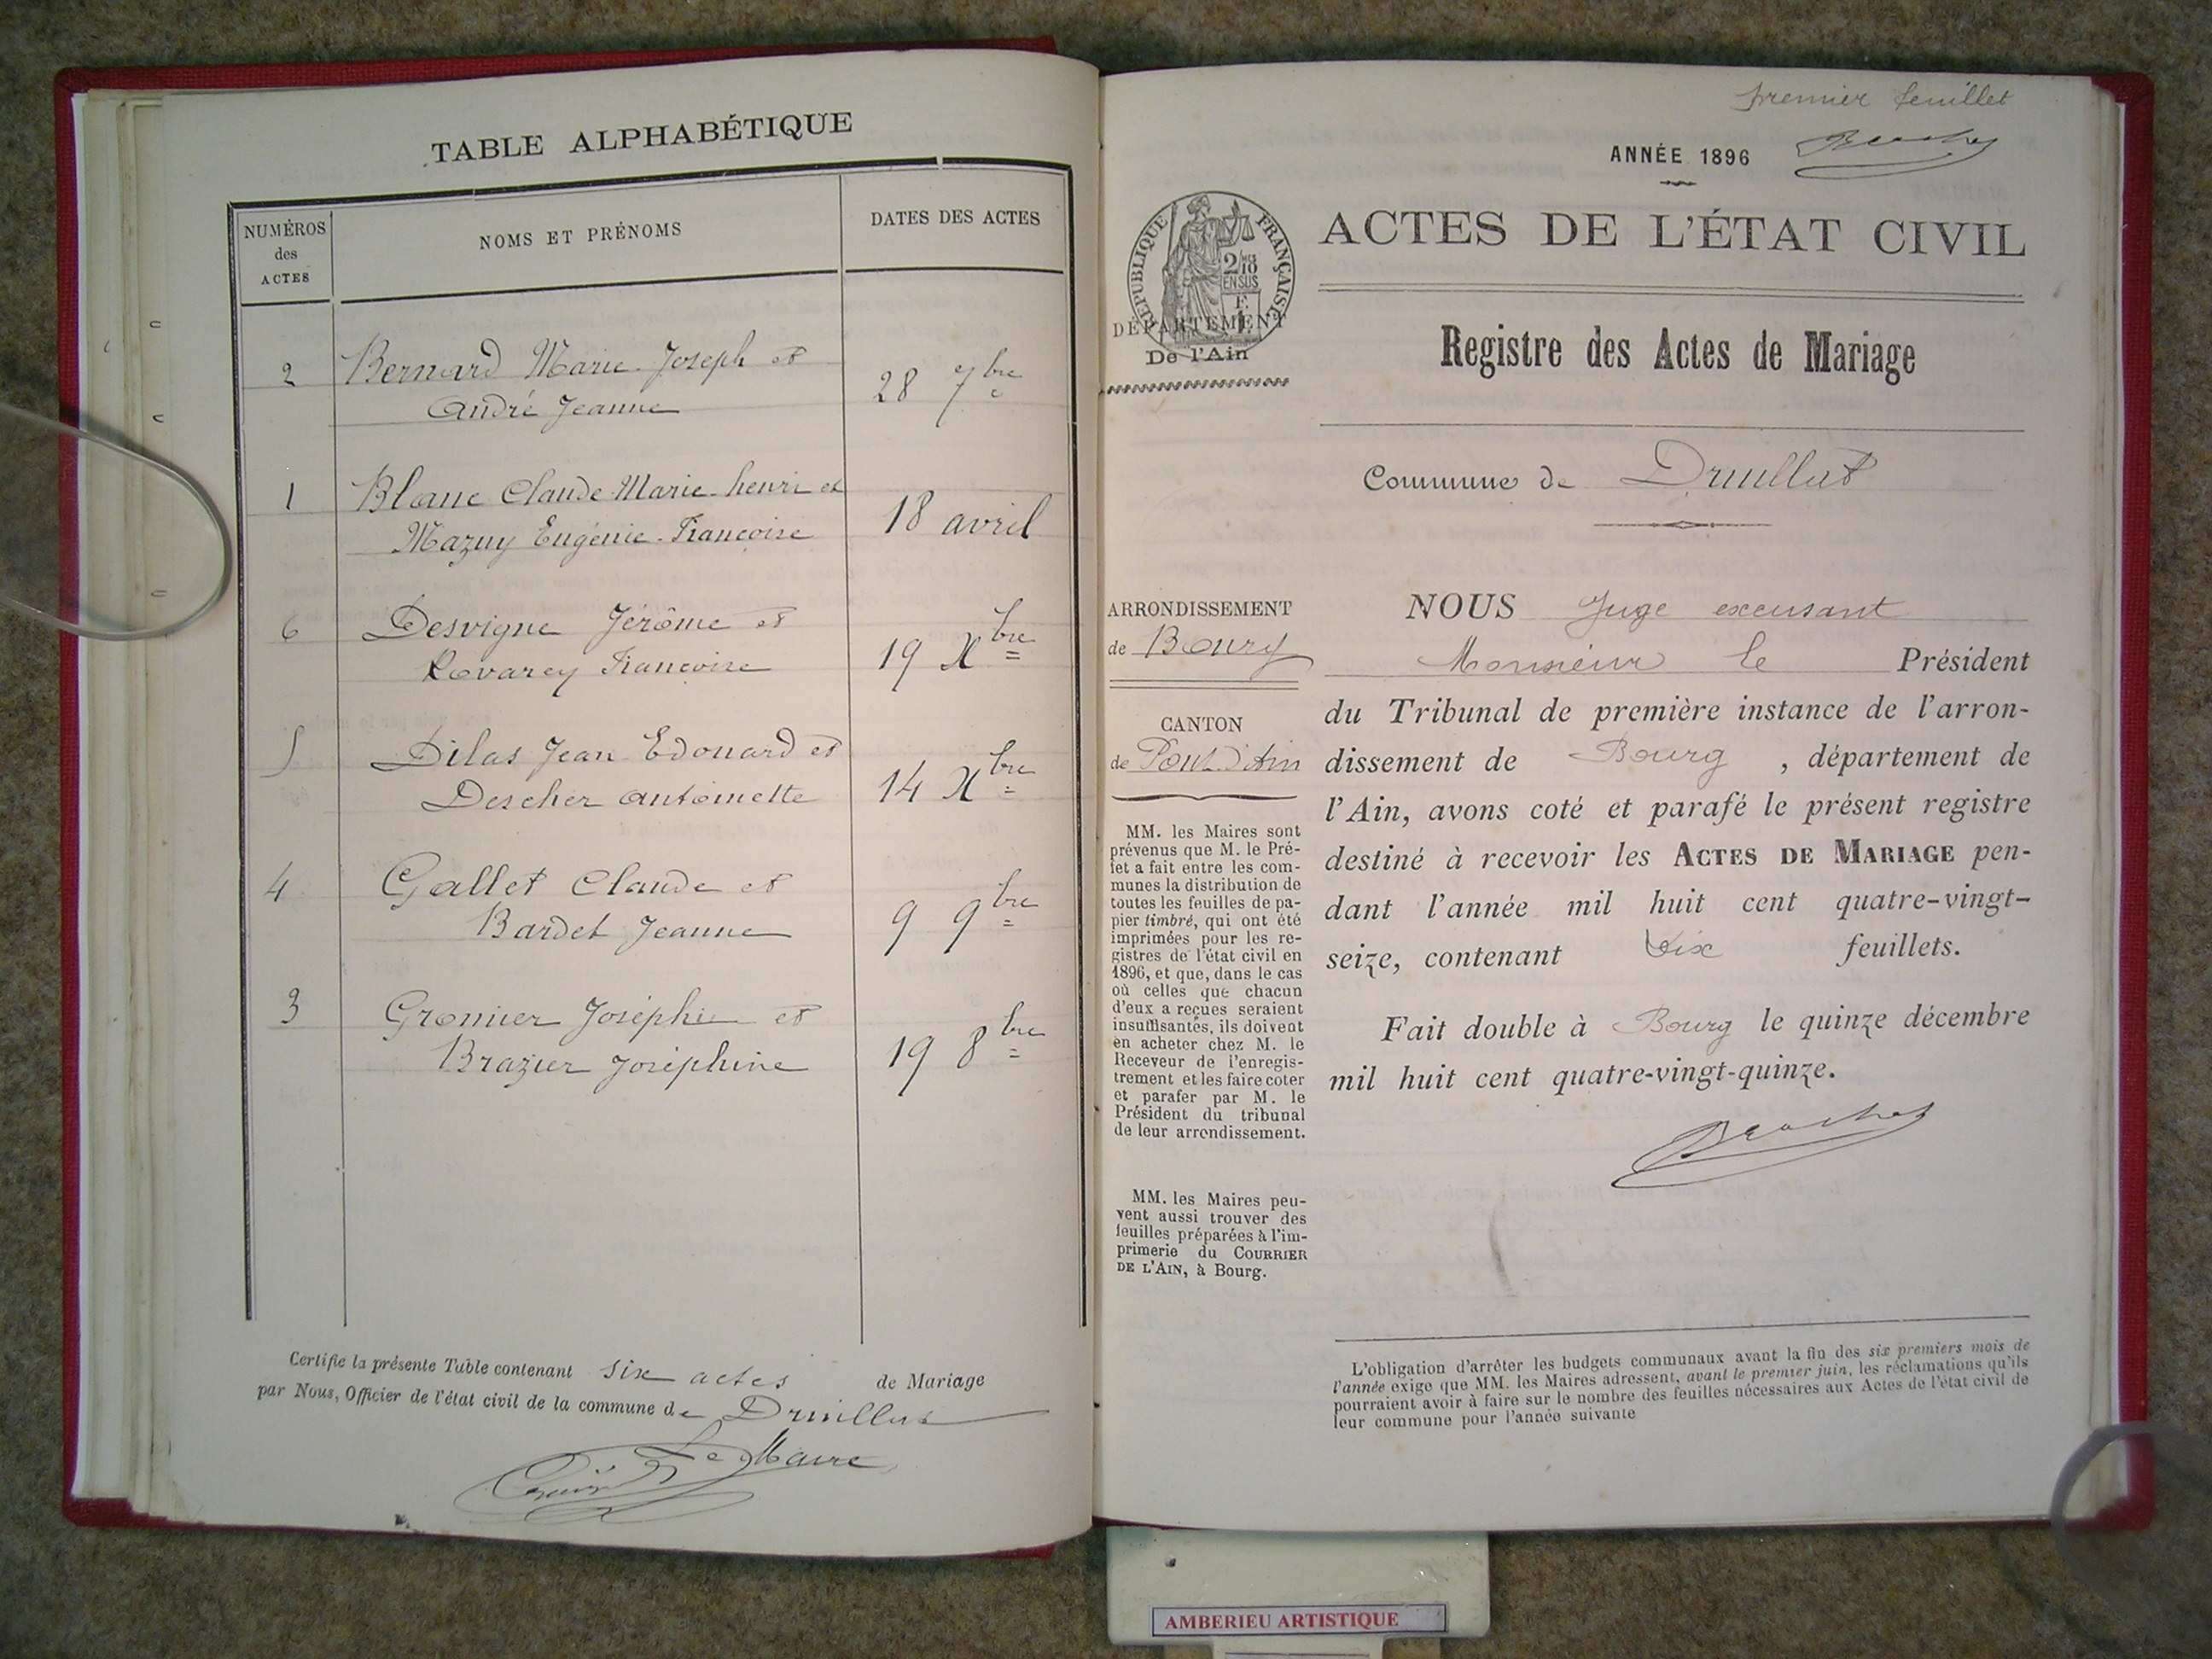 TABLE ALPHABÉTIQUE
NUMÉROS
des
ACTES
NOMS ET PRÉNOMS
DATES DES ACTES
2 Bernard Marie Joseph et
André Jeanne
28 7bre
1 Blanc Claude-Marie-henri et
Mazuy Eugénie-Françoise
18 avril
6 Desvigne Jérôme et
Françoise
19 Xbre
5 Dilas Jean Edouard et
Descher antoinette
14 Xbre
4 Gallet Claude et
Bardet Jeanne
9 9bre
3 Gromier Joséphin et
Brazier Joséphine
19 8bre
Certifie la présente Table contenant six actes de Mariage
par Nous, Officier de l'état civil de la commune de Druillat
Le Maire
premier feuillet
ANNÉE 1896
RÉPUBLIQUE FRANÇAISE
DÉPARTEMENT
De l'Ain
ACTES DE L'ÉTAT CIVIL
Registre des Actes de Mariage
Commune de Druillat
ARRONDISSEMENT
de Bourg
CANTON
de Pont d'Ain
MM. les Maires sont
prévenus que M. le Pré-
fet a fait entre les com-
munes la distribution de
toutes les feuilles de pa-
pier timbré, qui ont été
imprimées pour les re-
gistres de l'état civil en
1896, et que, dans le cas
où celles que chacun
d'eux a reçues seraient
insuffisantes, ils doivent
en acheter chez M. le
Receveur de l'enregis-
trement et les faire coter
et parafer par M. le
Président du tribunal
de leur arrondissement.
MM. les Maires peu-
vent aussi trouver des
feuilles préparées à l'im-
primerie du COURRIER
DE L'AIN, à Bourg.
NOUS Juge excusant
Monsieur le Président
du Tribunal de première instance de l'arron-
dissement de Bourg, département de
l'Ain, avons coté et parafé le présent registre
destiné à recevoir les ACTES DE MARIAGE pen-
dant l'année mil huit cent quatre-vingt-
seize, contenant feuillets.
Fait double à Bourg le quinze décembre
mil huit cent quatre-vingt-quinze.
L'obligation d'arrêter les budgets communaux avant la fin des six premiers mois de
l'année exige que MM. les Maires adressent, avant le premier juin, les réclamations qu'ils
pourraient avoir à faire sur le nombre des feuilles nécessaires aux Actes de l'état civil de
leur commune pour l'année suivante
AMBERIEU ARTISTIQUE